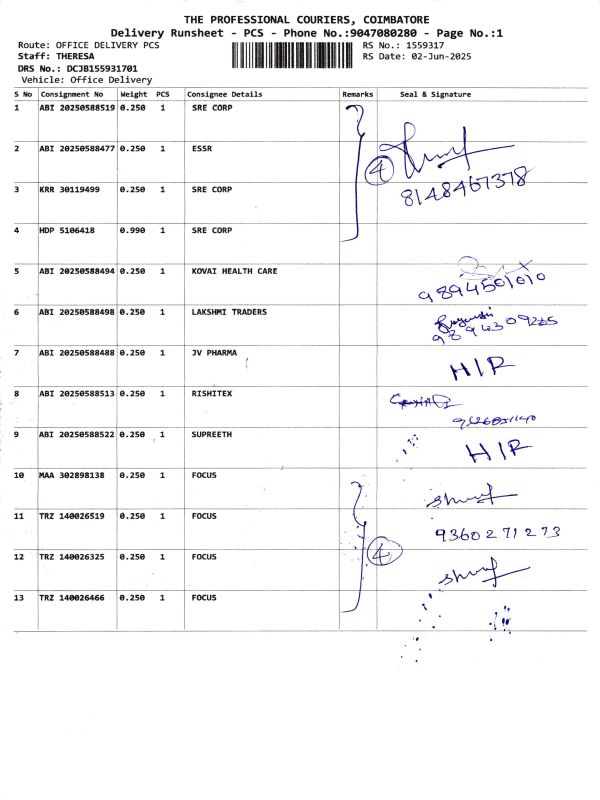 THE PROFESSIONAL COURIERS, COIMBATORE
Delivery Runsheet - PCS - Phone No.:9047080280 - Page No.:1
Route: OFFICE DELIVERY PCS
Staff: THERESA
DRS No.: DCJB155931701
Vehicle: Office Delivery
RS No.: 1559317
RS Date: 02-Jun-2025
S No Consignment No Weight PCS Consignee Details Remarks Seal & Signature
1 ABI 20250588519 0.250 1 SRE CORP
2 ABI 20250588477 0.250 1 ESSR
4
8148467378
3 KRR 30119499 0.250 1 SRE CORP
4 HDP 5106418 0.990 1 SRE CORP
5 ABI 20250588494 0.250 1 KOVAI HEALTH CARE
9894501010
6 ABI 20250588498 0.250 1 LAKSHMI TRADERS
7 ABI 20250588488 0.250 1 JV PHARMA
H/R
8 ABI 20250588513 0.250 1 RISHITEX
9 ABI 20250588522 0.250 1 SUPREETH
H/R
10 MAA 302898138 0.250 1 FOCUS
11 TRZ 140026519 0.250 1 FOCUS
9360271273
4
12 TRZ 140026325 0.250 1 FOCUS
13 TRZ 140026466 0.250 1 FOCUS